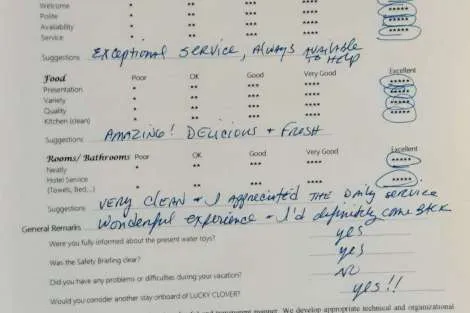 Welcome * ** *** **** *****
Polite * ** *** **** *****
Availability * ** *** **** *****
Service * ** *** **** *****
Suggestions EXCEPTIONAL SERVICE, ALWAYS AVAILABLE TO HELP
Food Poor OK Good Very Good Excellent
Presentation * ** *** **** *****
Variety * ** *** **** *****
Quality * ** *** **** *****
Kitchen (clean) * ** *** **** *****
Suggestions AMAZING! DELICIOUS + FRESH
Rooms/ Bathrooms Poor OK Good Very Good Excellent
Neatly * ** *** **** *****
Hotel Service * ** *** **** *****
(Towels, Bed,..)
Suggestions VERY CLEAN + I Appreciated THE DAILY SERVICE
General Remarks Wonderful experience - I'd definitely come BACK
Were you fully informed about the present water toys? yes
Was the Safety Briefing clear? yes
Did you have any problems or difficulties during your vacation? NO
Would you consider another stay onboard of LUCKY CLOVER? yes!!
and transparent manner. We develop appropriate technical and organizational